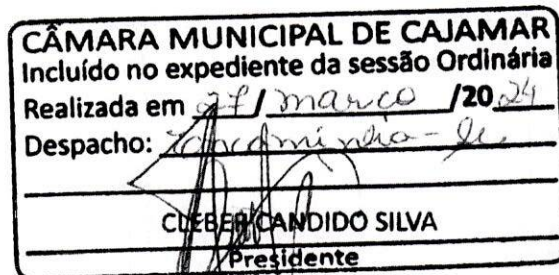 CÂMARA MUNICIPAL DE CAJAMAR
Incluído no expediente da sessão Ordinária
Realizada em 27 / março /20 24
Despacho: Encaminhe-se.
CLEBER CANDIDO SILVA
Presidente